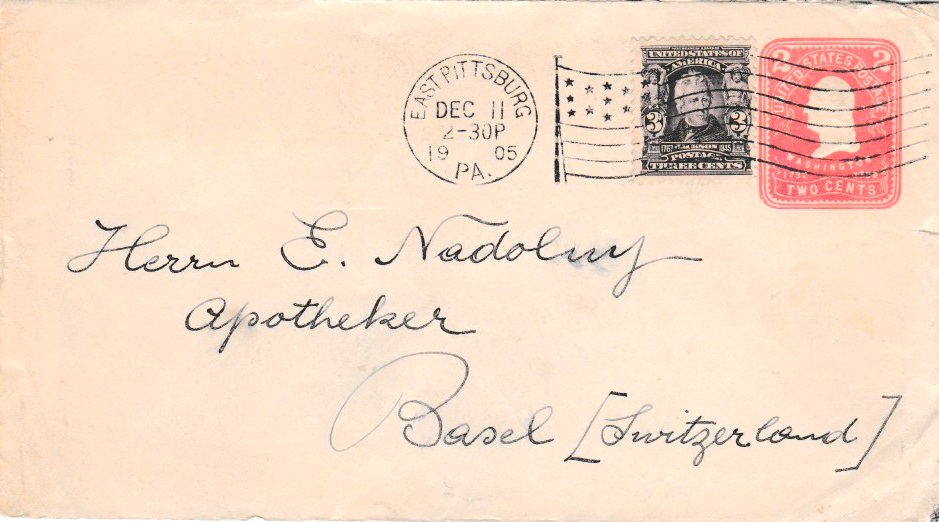 EAST PITTSBURG
DEC 11
2-30P
19 05
PA.
UNITED STATES OF
AMERICA
3 3
1767 JACKSON 1845
POSTAGE
THREE CENTS
2 2
UNITED STATES POSTAGE
WASHINGTON
TWO CENTS
Herrn E. Nadolny
Apotheker
Basel [Switzerland]